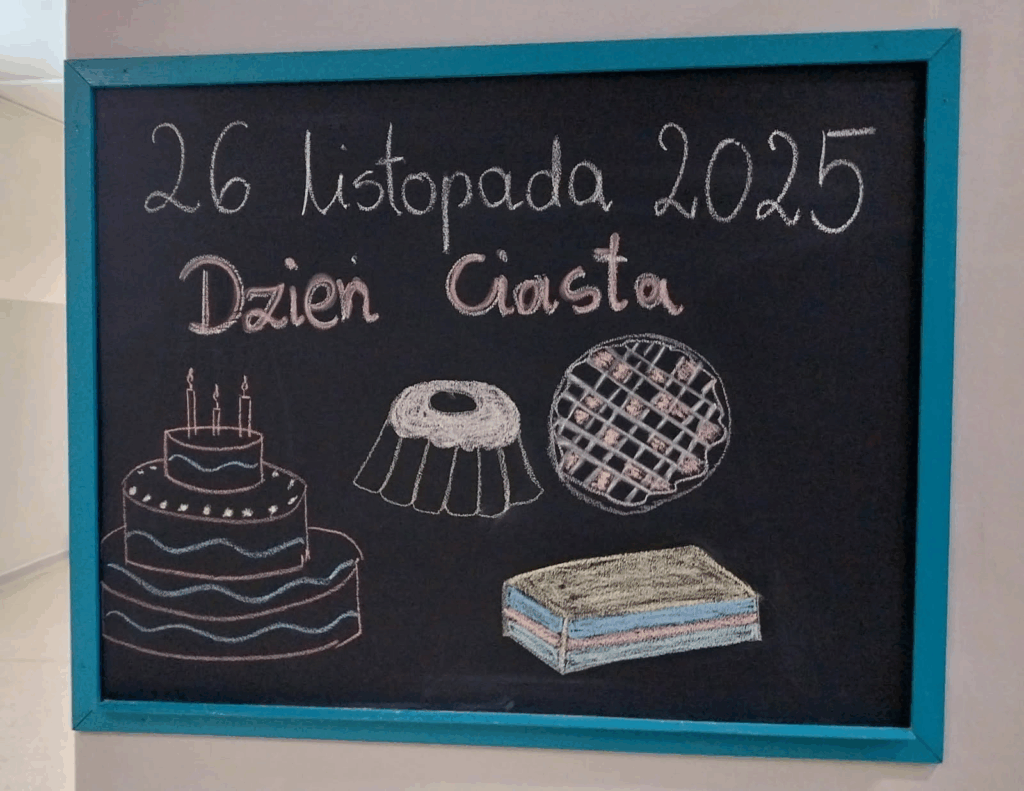 26 listopada 2025
Dzień Ciasta